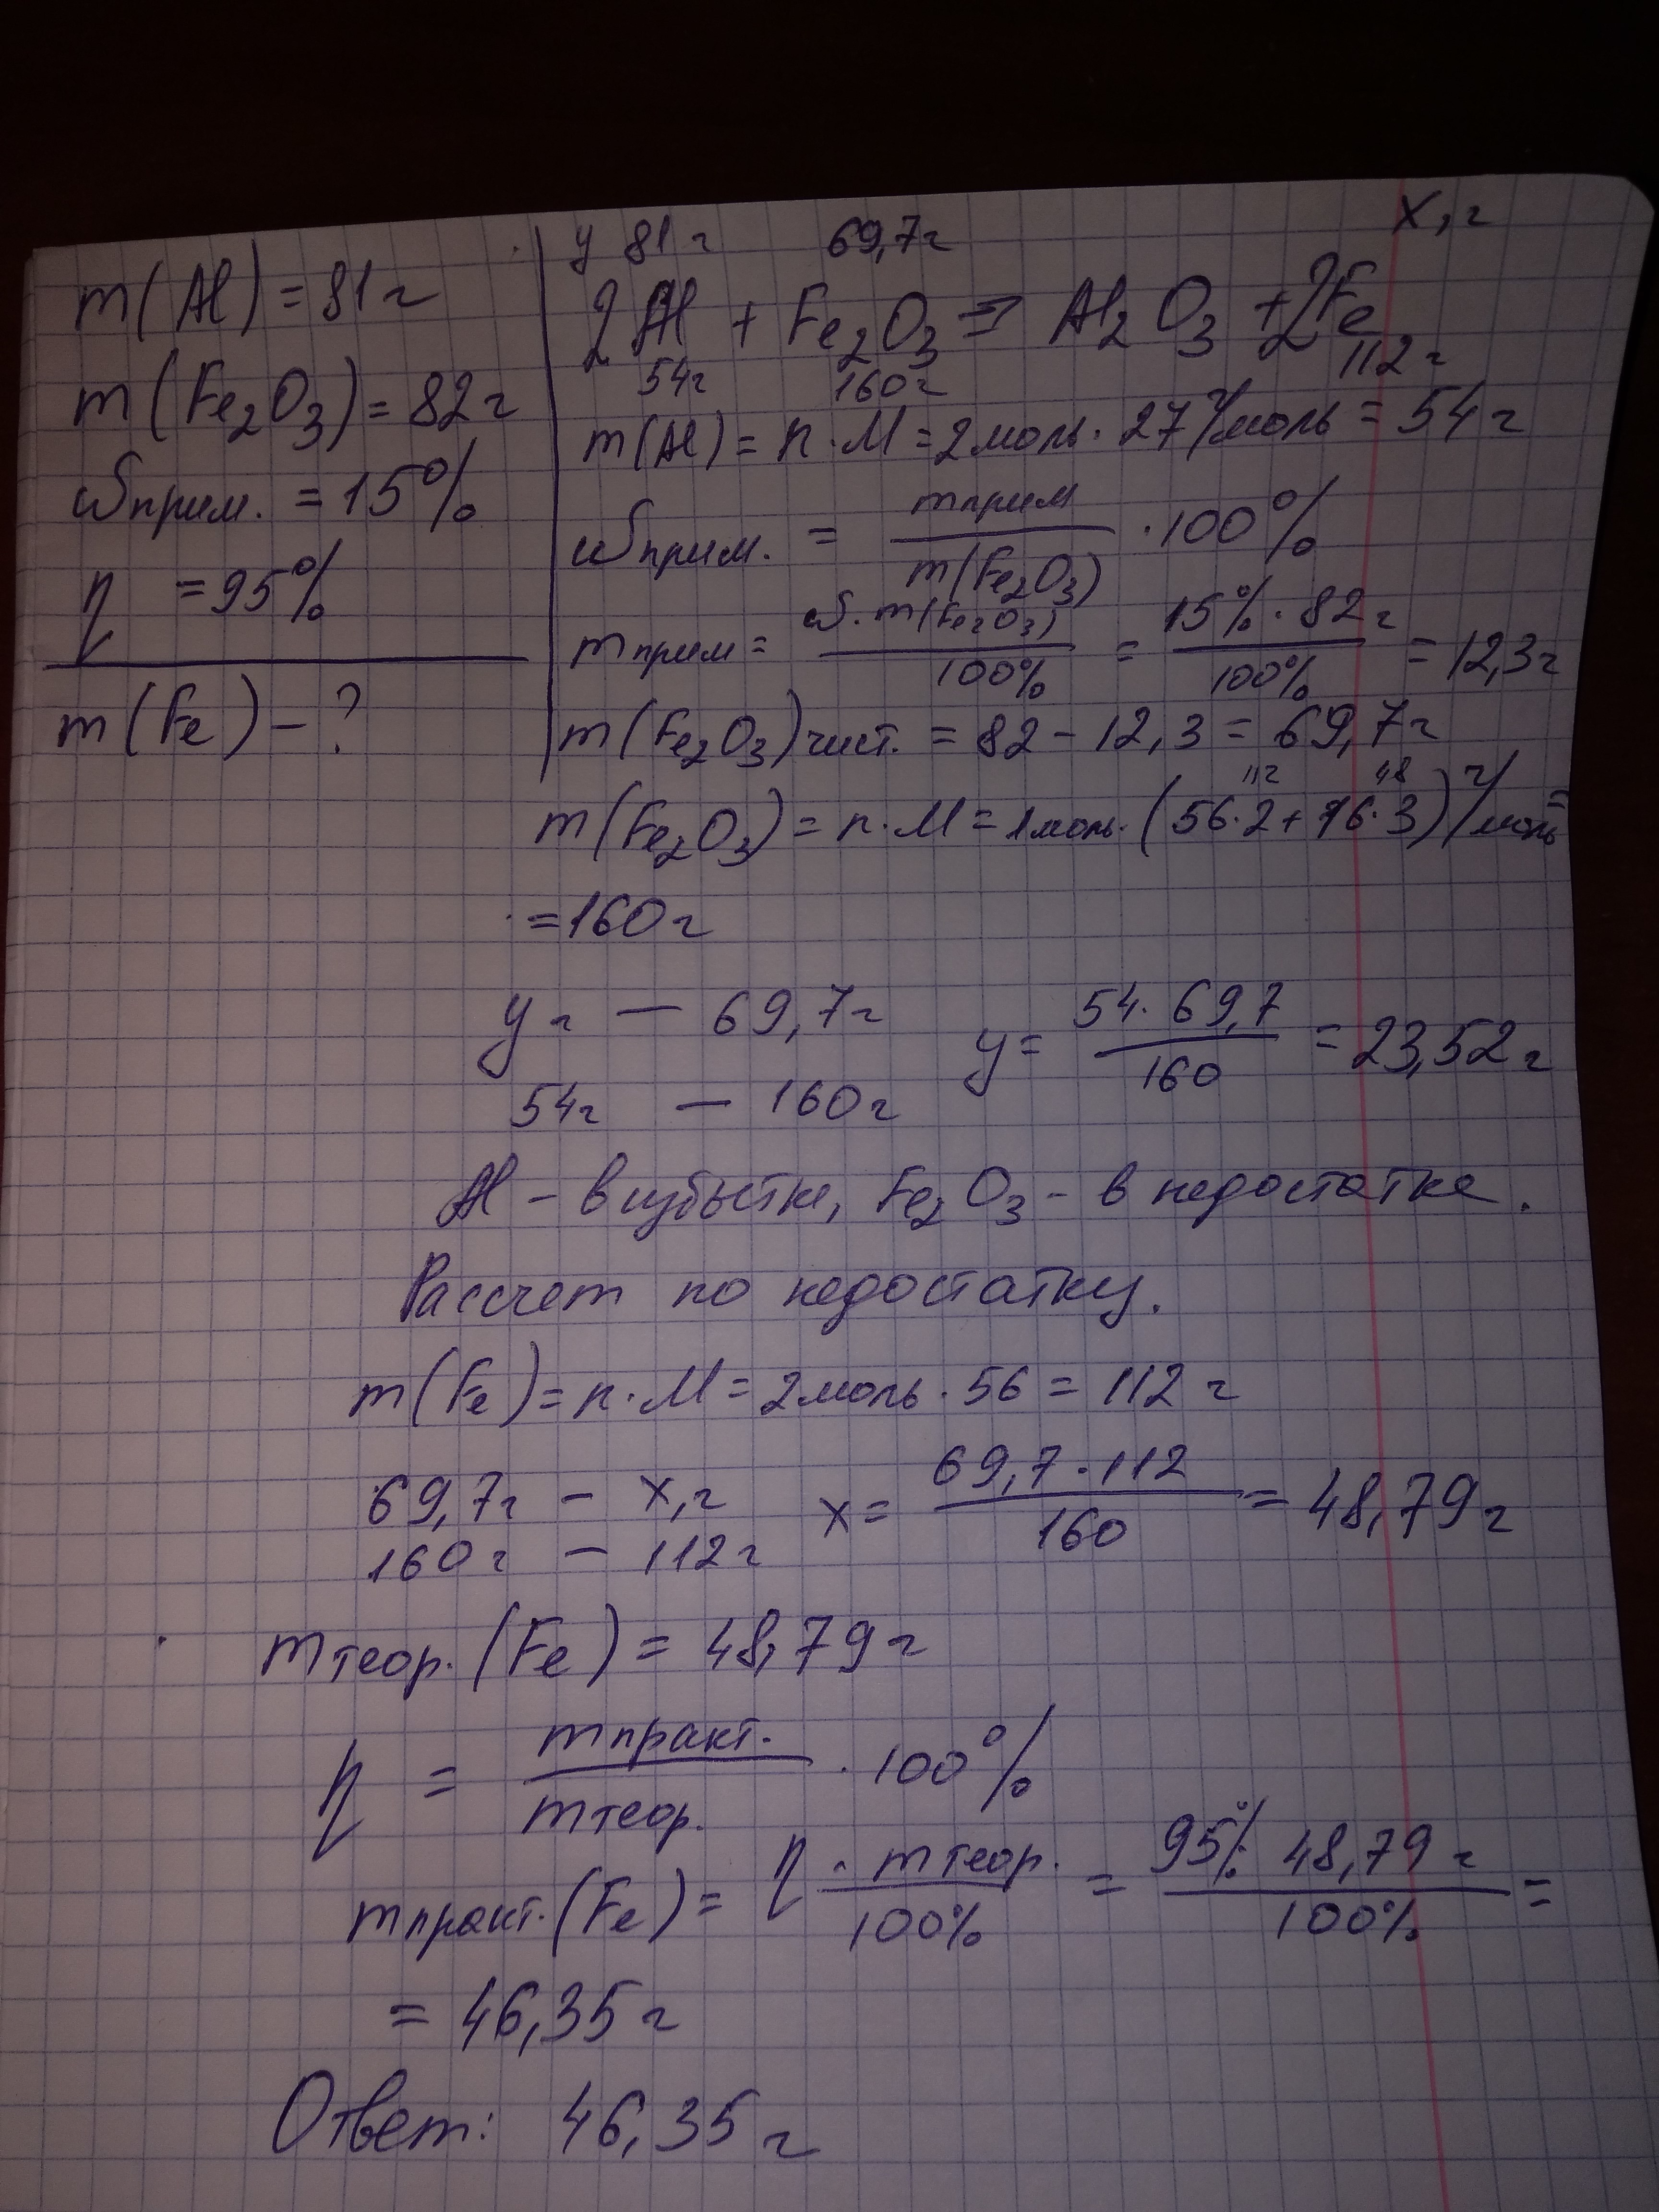 m(Al) = 81 г
m(Fe₂O₃) = 82 г
ωприм. = 15%
η = 95%
m(Fe) – ?
y 81 г 69,7г x, г
2Al + Fe₂O₃ => Al₂O₃ + 2Fe
54г 160г 112г
m(Al) = n · M = 2 моль · 27 г/моль = 54 г
ωприм. = mприм / m(Fe₂O₃) · 100%
mприм = ω · m(Fe₂O₃) / 100% = 15% · 82 г / 100% = 12,3 г
m(Fe₂O₃)чист. = 82 – 12,3 = 69,7 г
112 48
m(Fe₂O₃) = n · M = 1 моль · (56·2 + 16·3) г/моль =
= 160 г
y г – 69,7 г y = 54 · 69,7 / 160 = 23,52 г
54 г – 160 г
Al – в избытке, Fe₂O₃ – в недостатке.
Рассчет по недостатку.
m(Fe) = n · M = 2 моль · 56 = 112 г
69,7г – x, г x = 69,7 · 112 / 160 = 48,79 г
160 г – 112 г
mтеор. (Fe) = 48,79 г
η = mпракт. / mтеор. · 100%
mпракт. (Fe) = η · mтеор. / 100% = 95% 48,79 г / 100% =
= 46,35 г
Ответ: 46,35 г